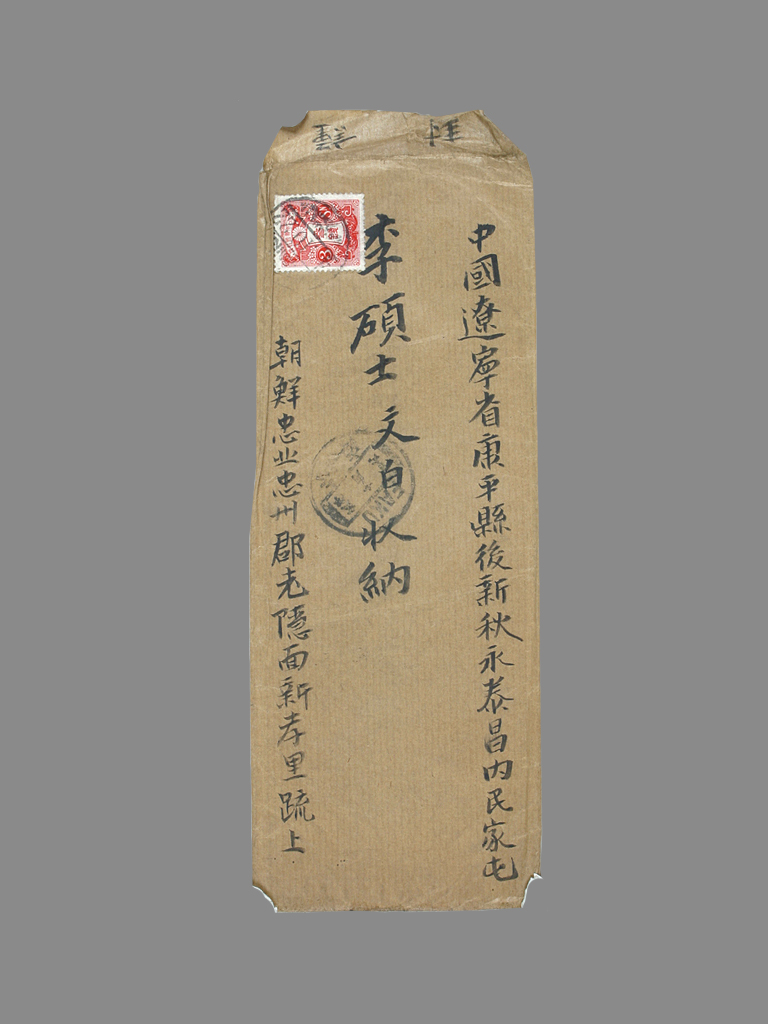 中國遼寧省康平縣後新秋永泰昌內民家屯
李碩士文白收納
朝鮮忠北忠州郡老隱面新孝里䟽上